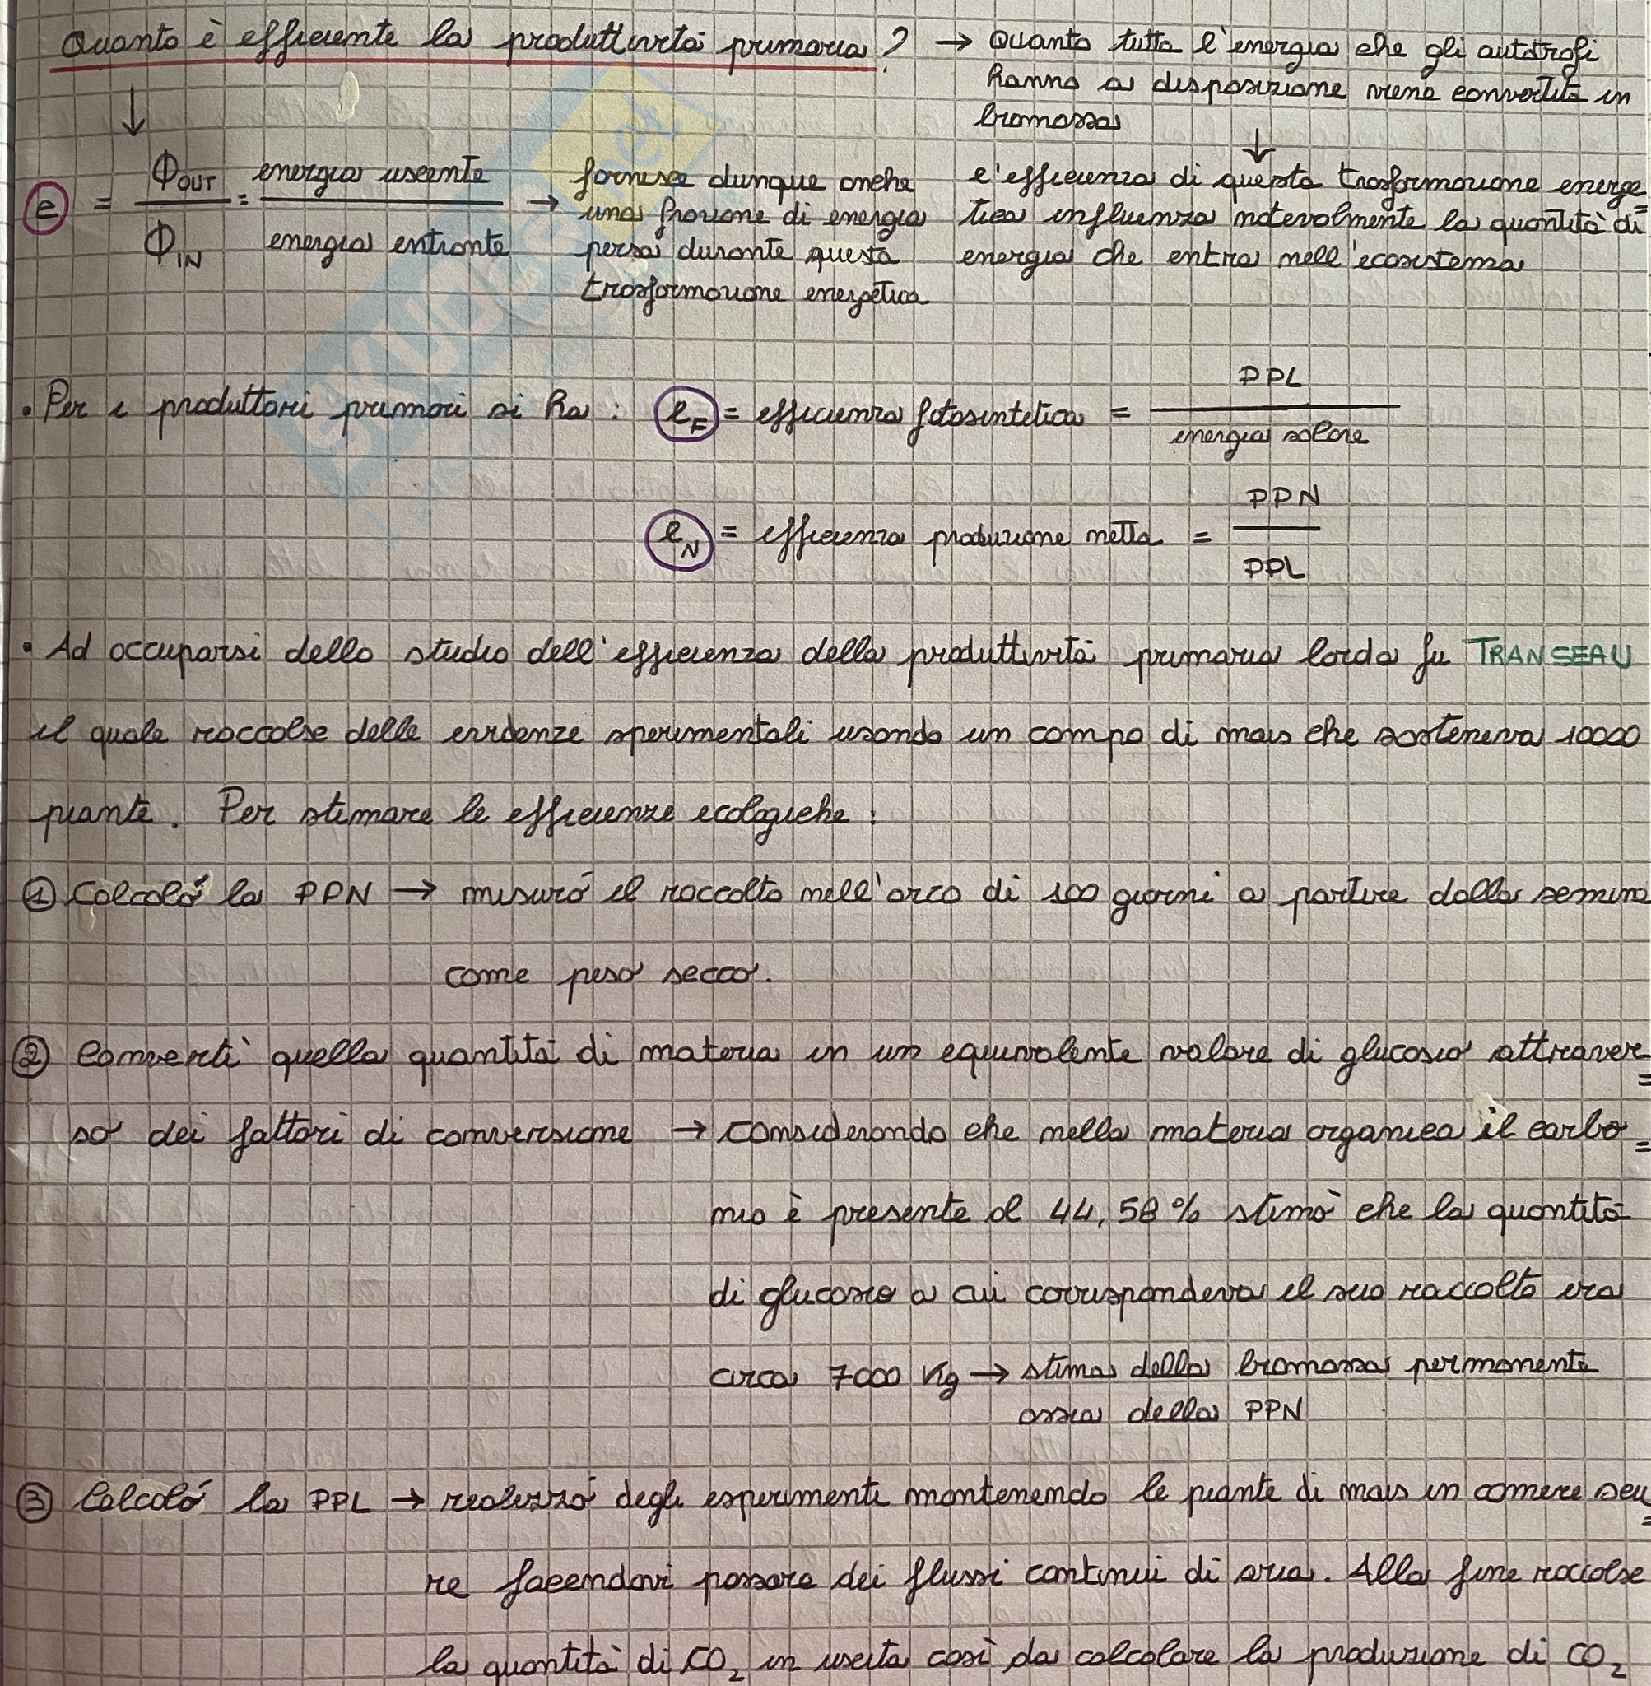 Quanto è efficiente la produttività primaria? → Quanto tutta l'energia che gli autotrofi
hanno a disposizione viene convertita in
biomassa
↓
↓
e = ΦOUT / ΦIN = energia uscente / energia entrante → fornisce dunque anche
una frazione di energia
persa durante questa
trasformazione energetica
l'efficienza di questa trasformazione energe=
tica influenza notevolmente la quantità di
energia che entra nell'ecosistema
• Per i produttori primari si ha: eF = efficienza fotosintetica = PPL / energia solare
eN = efficienza produzione netta = PPN / PPL
• Ad occuparsi dello studio dell'efficienza della produttività primaria lorda fu TRANSEAU
il quale raccolse delle evidenze sperimentali usando un campo di mais che sosteneva 10000
piante. Per stimare le efficienze ecologiche:
① Calcolò la PPN → misurò il raccolto nell'arco di 100 giorni a partire dalla semina
come peso secco.
② Convertì quella quantità di materia in un equivalente valore di glucosio attraver=
so dei fattori di conversione → considerando che nella materia organica il carbo=
nio è presente al 44,58% stimò che la quantità
di glucosio a cui corrispondeva il suo raccolto era
circa 7000 Kg → stima della biomassa permanente
ossia della PPN
③ Calcolò la PPL → realizzò degli esperimenti mantenendo le piante di mais in camere scu=
re facendovi passare dei flussi continui di aria. Alla fine raccolse
la quantità di CO₂ in uscita così da calcolare la produzione di CO₂